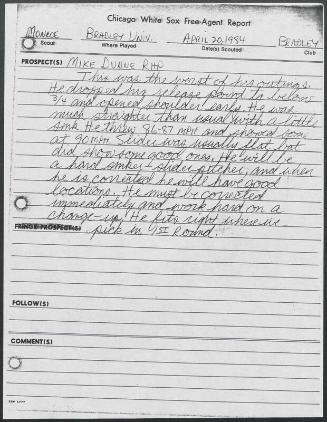 Chicago White Sox Free-Agent Report
Monroe Bradley Univ. April 20, 1984 Bradley
Scout Where Played Date(s) Scouted Club
PROSPECT(S) Mike Dunne RHP
This was the worst of his outings.
He dropped his release point to below
3/4 and opened shoulder early. He was
much straighter than usual with a little
sink. He threw 86-87 MPH and showed some
at 90 MPH. Slider was usually flat but
did show some good ones. He will be
a hard sinker-slider pitcher, and when
he is corrected he will have good
location. He must be corrected
immediately and work hard on a
change-up. He fits right where we
FRINGE PROSPECT(S) pick in 1st Round.
FOLLOW(S)
COMMENT(S)